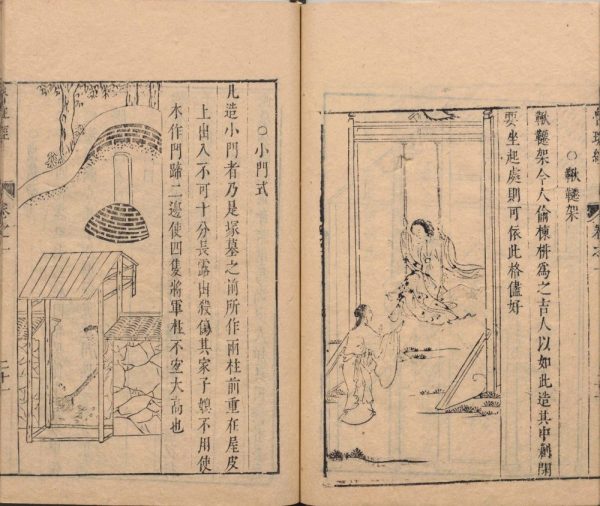 ○鞦韆架
鞦韆架今人偷棟栟爲之吉人以如此造其中創閑
要坐起處則可依此格儘好
○小門式
凡造小門者乃是塚墓之前所作兩柱前重在屋皮
上出入不可十分長露出殺傷其家子媳不用使
木作門蹄二邊使四隻將軍柱不宜大高也
卷之一
二十一